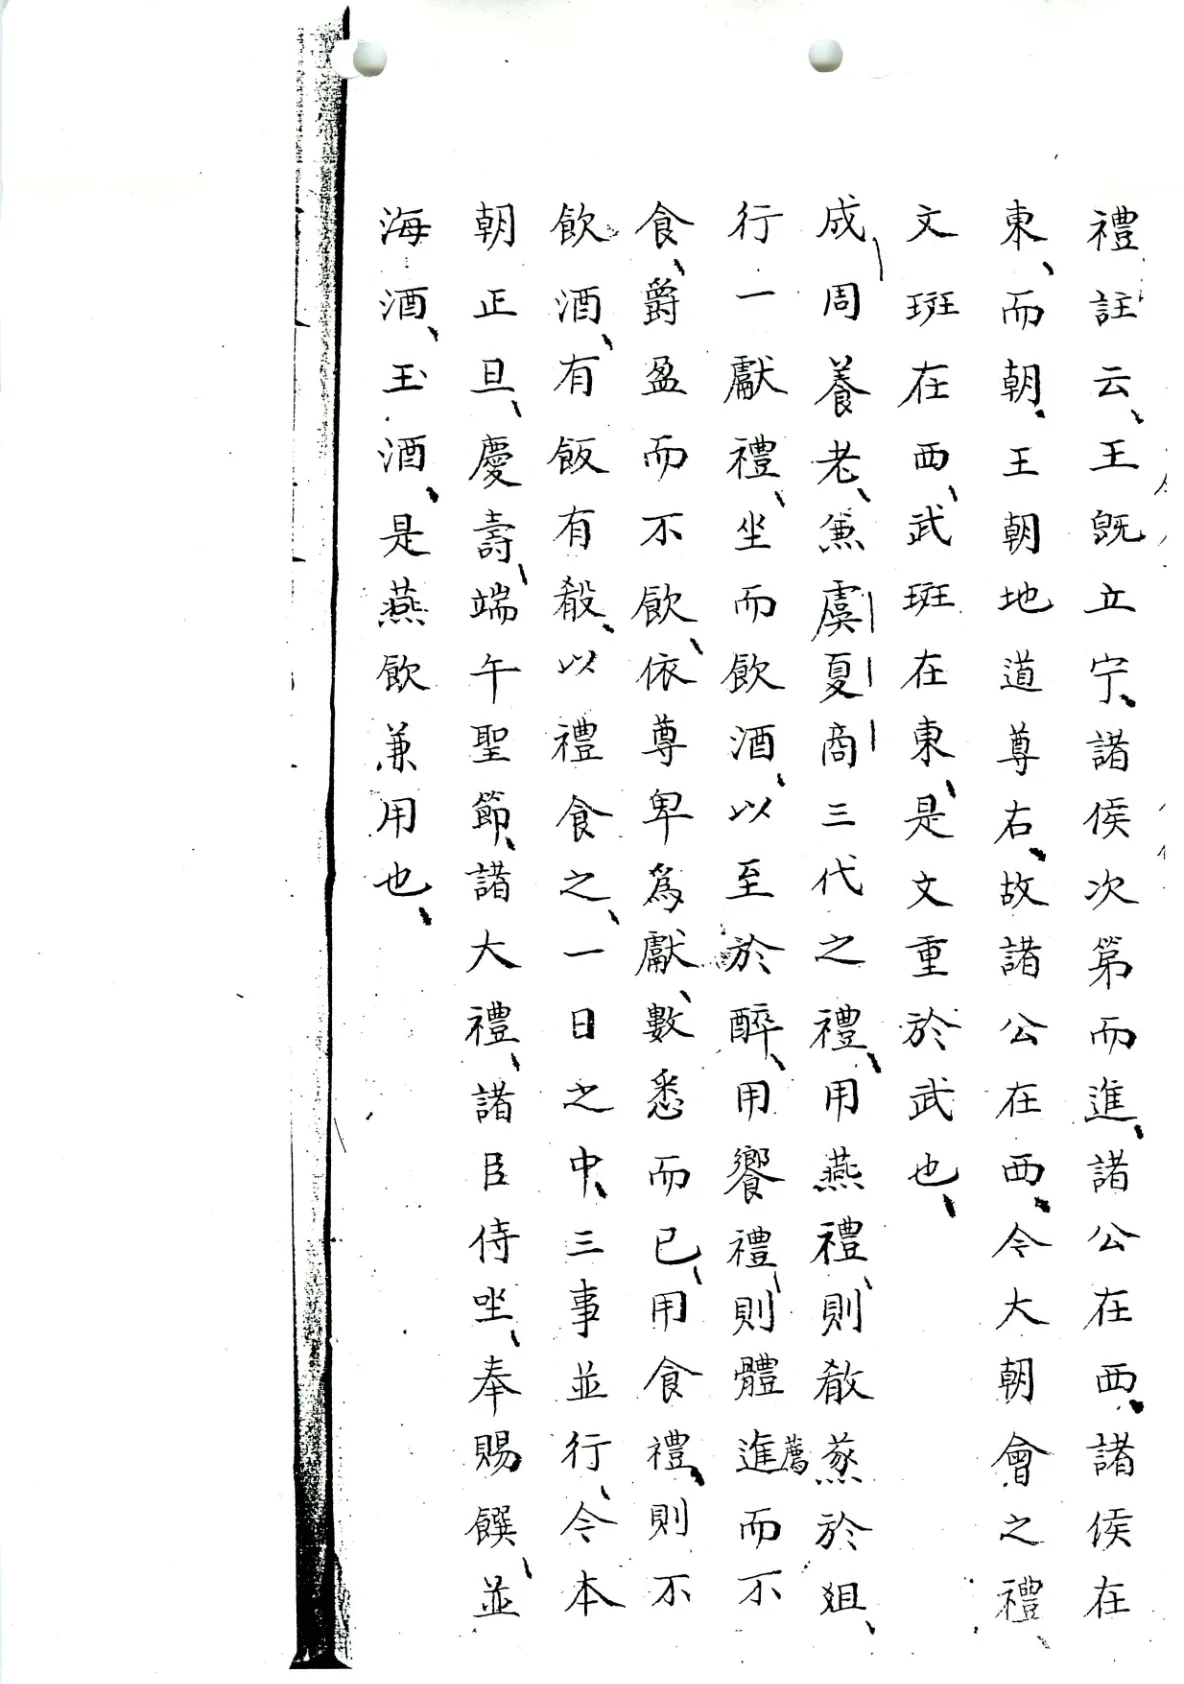 禮註云、王既立宁、諸侯次第而進、諸公在西、諸侯在
東、而朝、王朝地道尊右、故諸公在西、今大朝會之禮、
文班在西、武班在東、是文重於武也、
成周養老、兼虞夏商三代之禮、用燕禮、則殽蒸於俎、
行一獻禮、坐而飲酒、以至於醉、用饗禮、則體薦進而不
食、爵盈而不飲、依尊卑為獻、數悉而已、用食禮、則不
飲酒、有飯有殽、以禮食之、一日之中、三事並行、今本
朝正旦、慶壽、端午聖節、諸大禮、諸臣侍坐、奉賜饌、並
海酒、玉酒、是燕飲兼用也、